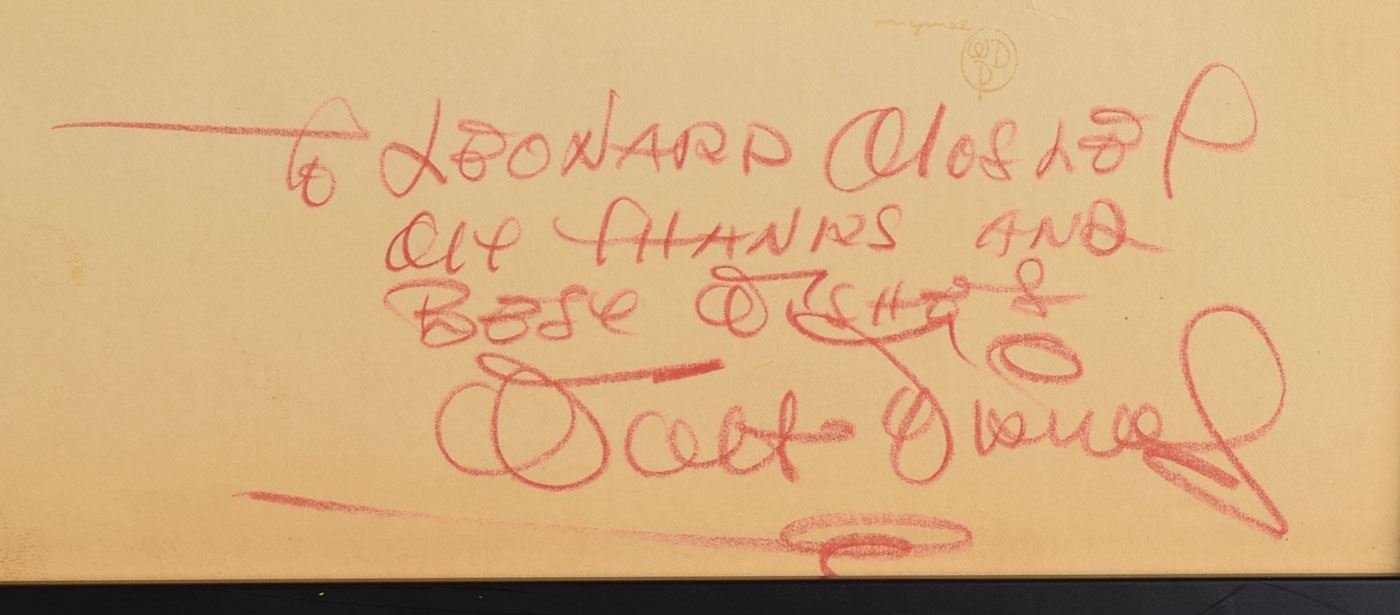 original
WDP
To LEONARD MOSLEY
MY THANKS AND
BEST WISHES
Walt Disney